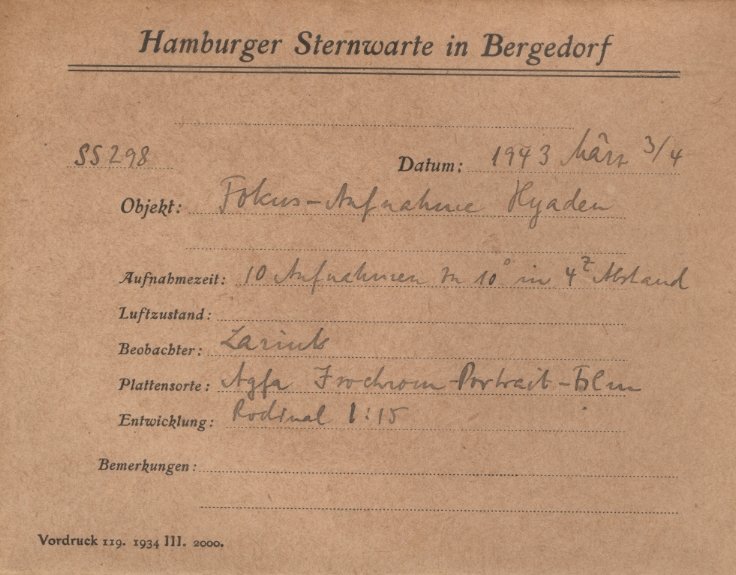 Hamburger Sternwarte in Bergedorf
SS 298 Datum: 1943 März 3/4
Objekt: Fokus-Aufnahme Hyaden
Aufnahmezeit: 10 Aufnahmen zu 10ˢ in 4ᶻ Abstand
Luftzustand:
Beobachter:
Plattensorte: Agfa Isochrom-Portrait-Film
Entwicklung: Rodinal 1:15
Bemerkungen:
Vordruck 119. 1934 III. 2000.